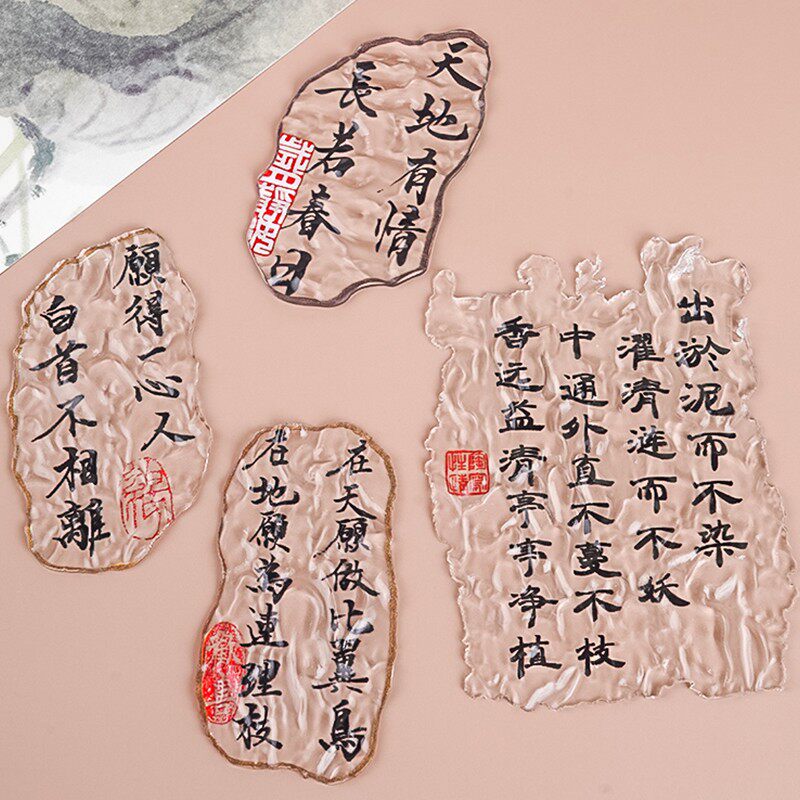 天地有情
長若春日
願得一心人
白首不相離
在天願做比翼鳥
在地願為連理枝
出淤泥而不染
濯清涟而不妖
中通外直不蔓不枝
香远益清亭亭净植